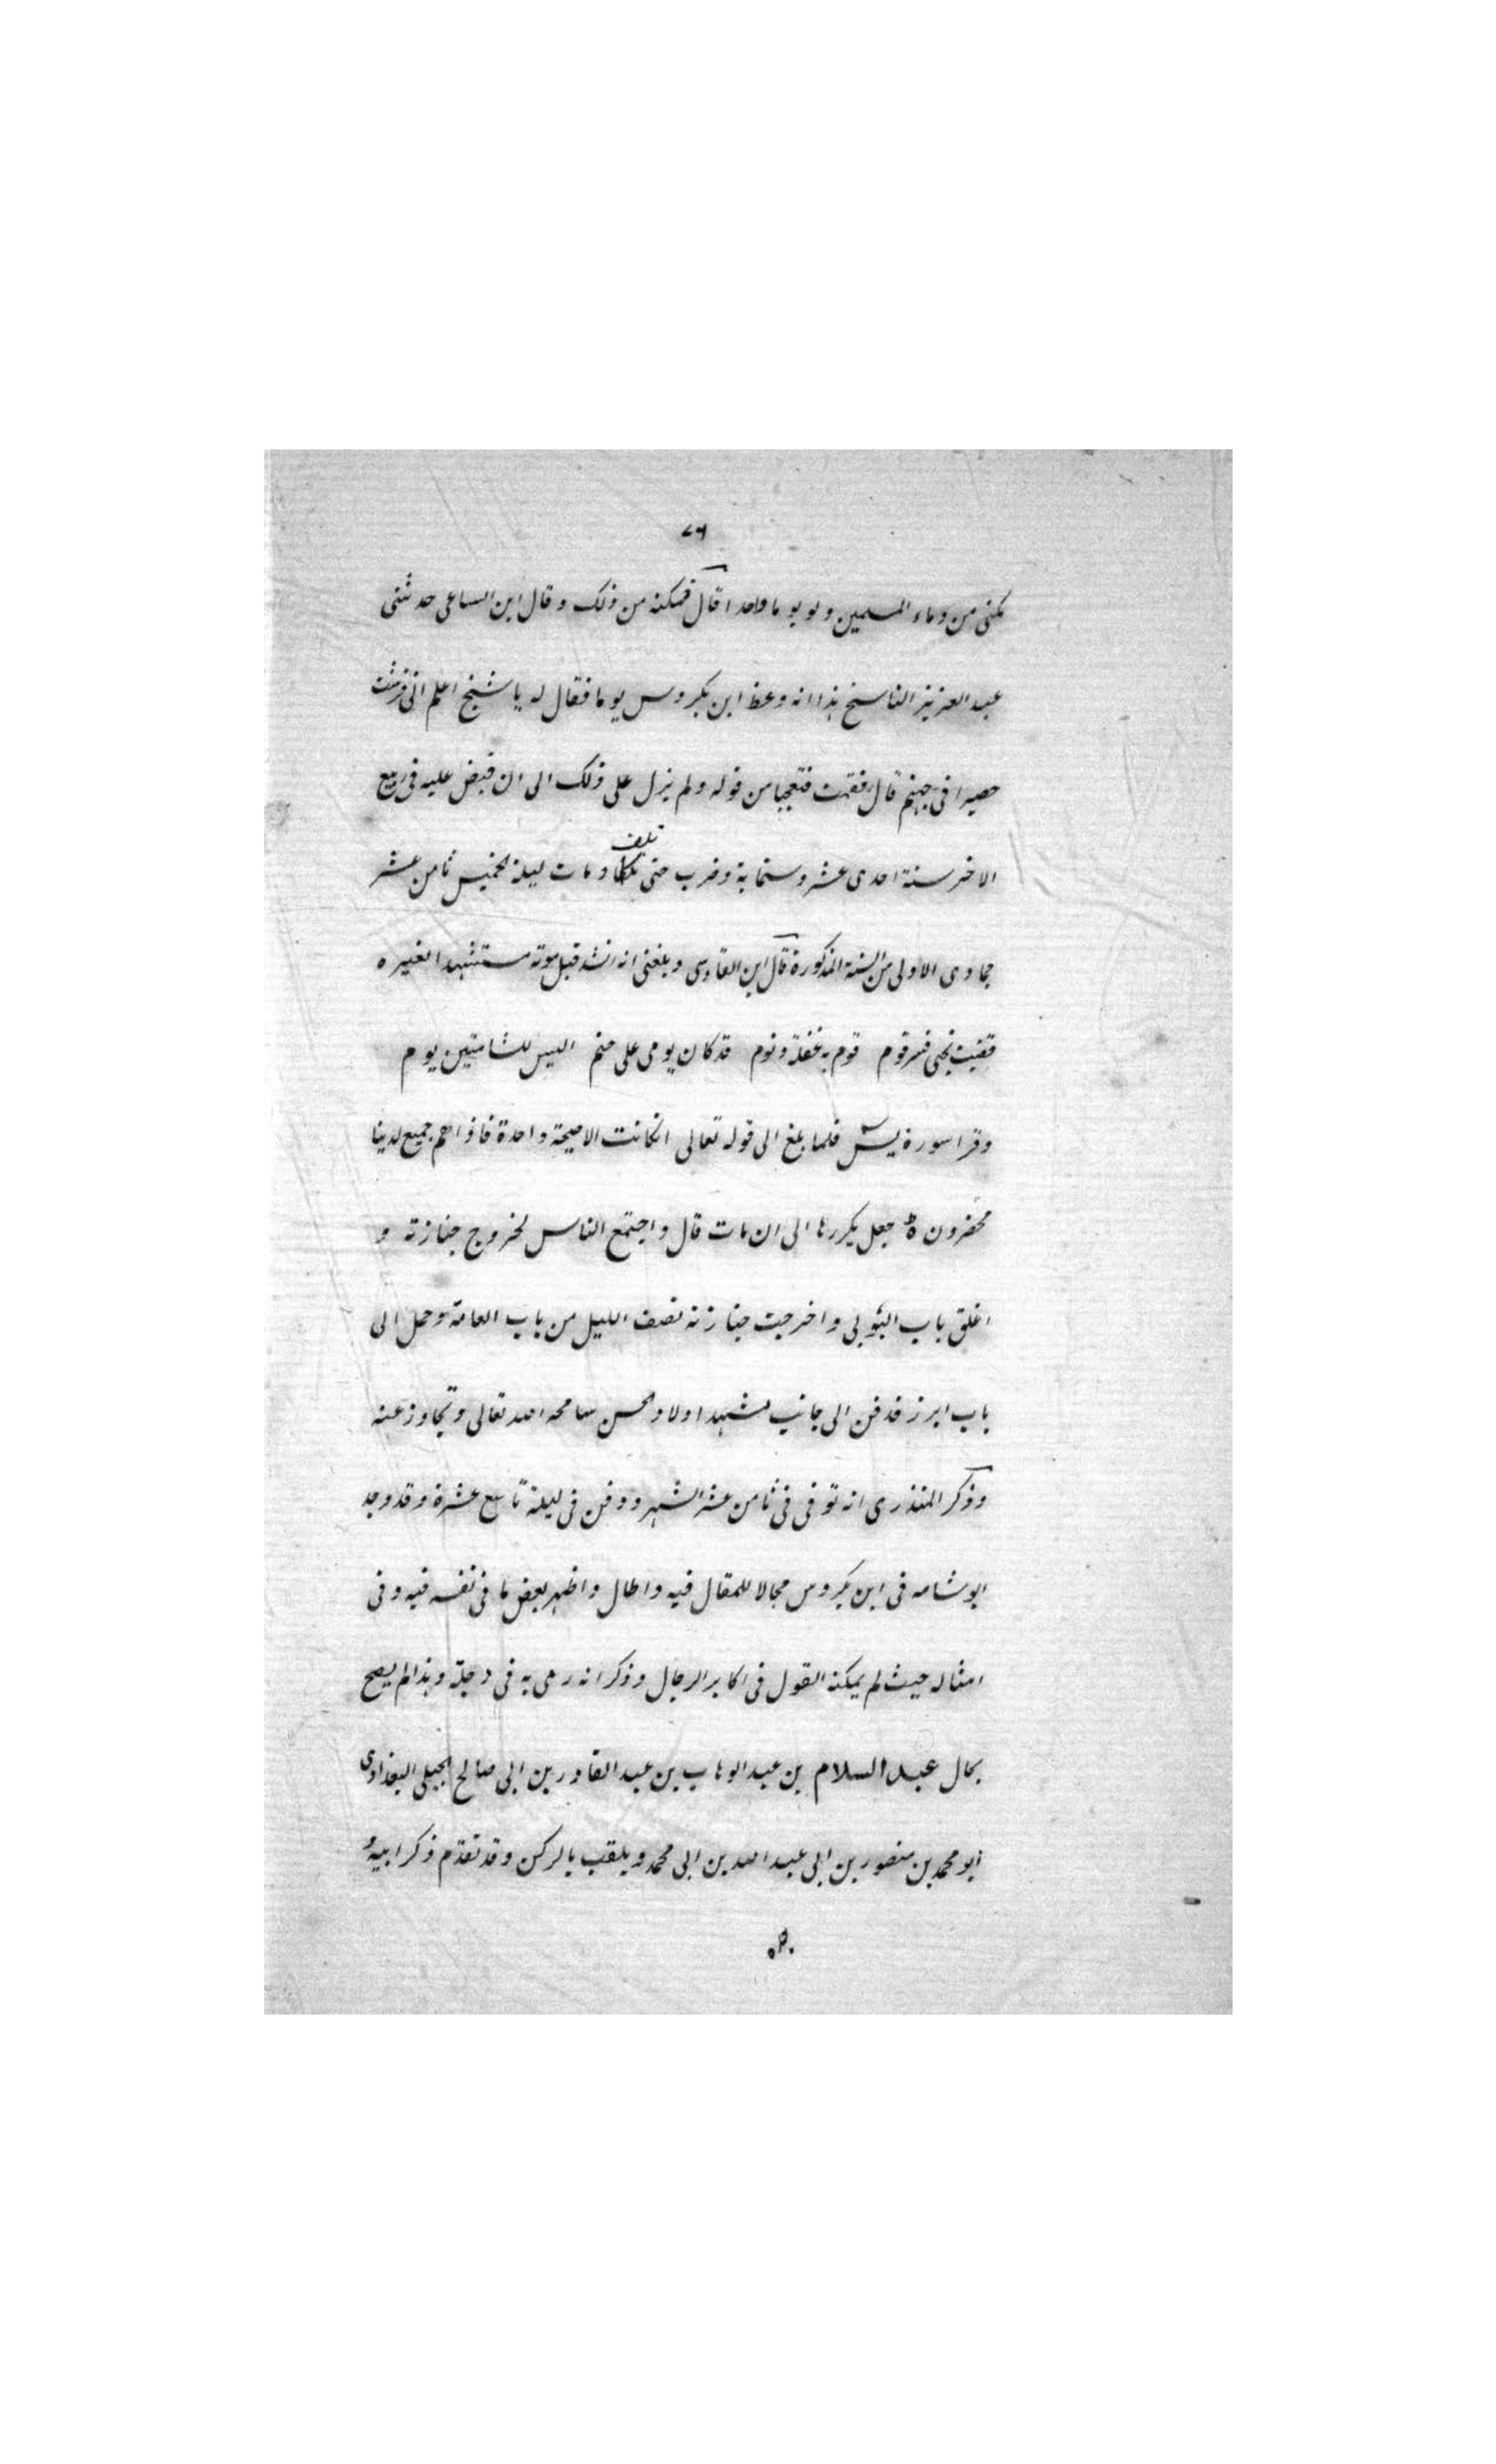 ٧٦
مكنى من دماء المسلمين ولو يوما واحدا قال فمكنه من ذلك وقال ابن الساعى حدثنى
عبد العزيز الناسخ هذا انه وعظ ابن بكروس يوما فقال له يا شيخ اعلم انى فرشت
حصيرا فى جهنم قال فقمت متعجبا من قوله ولم يزل على ذلك الى ان قبض عليه فى ربيع
الاخر سنة احدى عشر وستماية وضرب حتى تلف ومات ليلة الخميس ثامن عشر
جمادى الاولى من السنة المذكورة قال ابن القادسى وبلغنى انه انشد قبل موته مستشهدا لغيره
قضيت نحبى فسر قوم قوم بهم غفلة ونوم قد كان يومى على حتم اليس للشامتين يوم
وقرا سورة يس فلما بلغ الى قوله تعالى ان كانت الا صيحة واحدة فاذا هم جميع لدينا
محضرون جعل يكررها الى ان مات قال واجتمع الناس لخروج جنازته و
اغلق باب النوبى واخرجت جنازته نصف الليل من باب العامة وحمل الى
باب ابرز فدفن الى جانب مشهد اولاد الحسن سامحه الله تعالى وتجاوز عنه
وذكر المنذرى انه توفى فى ثامن عشر الشهر ودفن فى ليلة تاسع عشرة وقد وجد
ابو شامه فى ابن بكروس مجالا للمقال فيه واطال واظهر بعض ما فى نفسه فيه وفى
امثاله حيث لم يمكنه القول فى اكابر الرجال وذكر انه رمى به فى دجلة وهذا لم يصح
بحال عبد السلام بن عبد الوهاب بن عبد القادر بن ابى صالح الجيلى البغدادى
ابو محمد بن منصور بن ابى عبد الله بن ابى محمد ويلقب بالركن وقد تقدم ذكر ابيه و